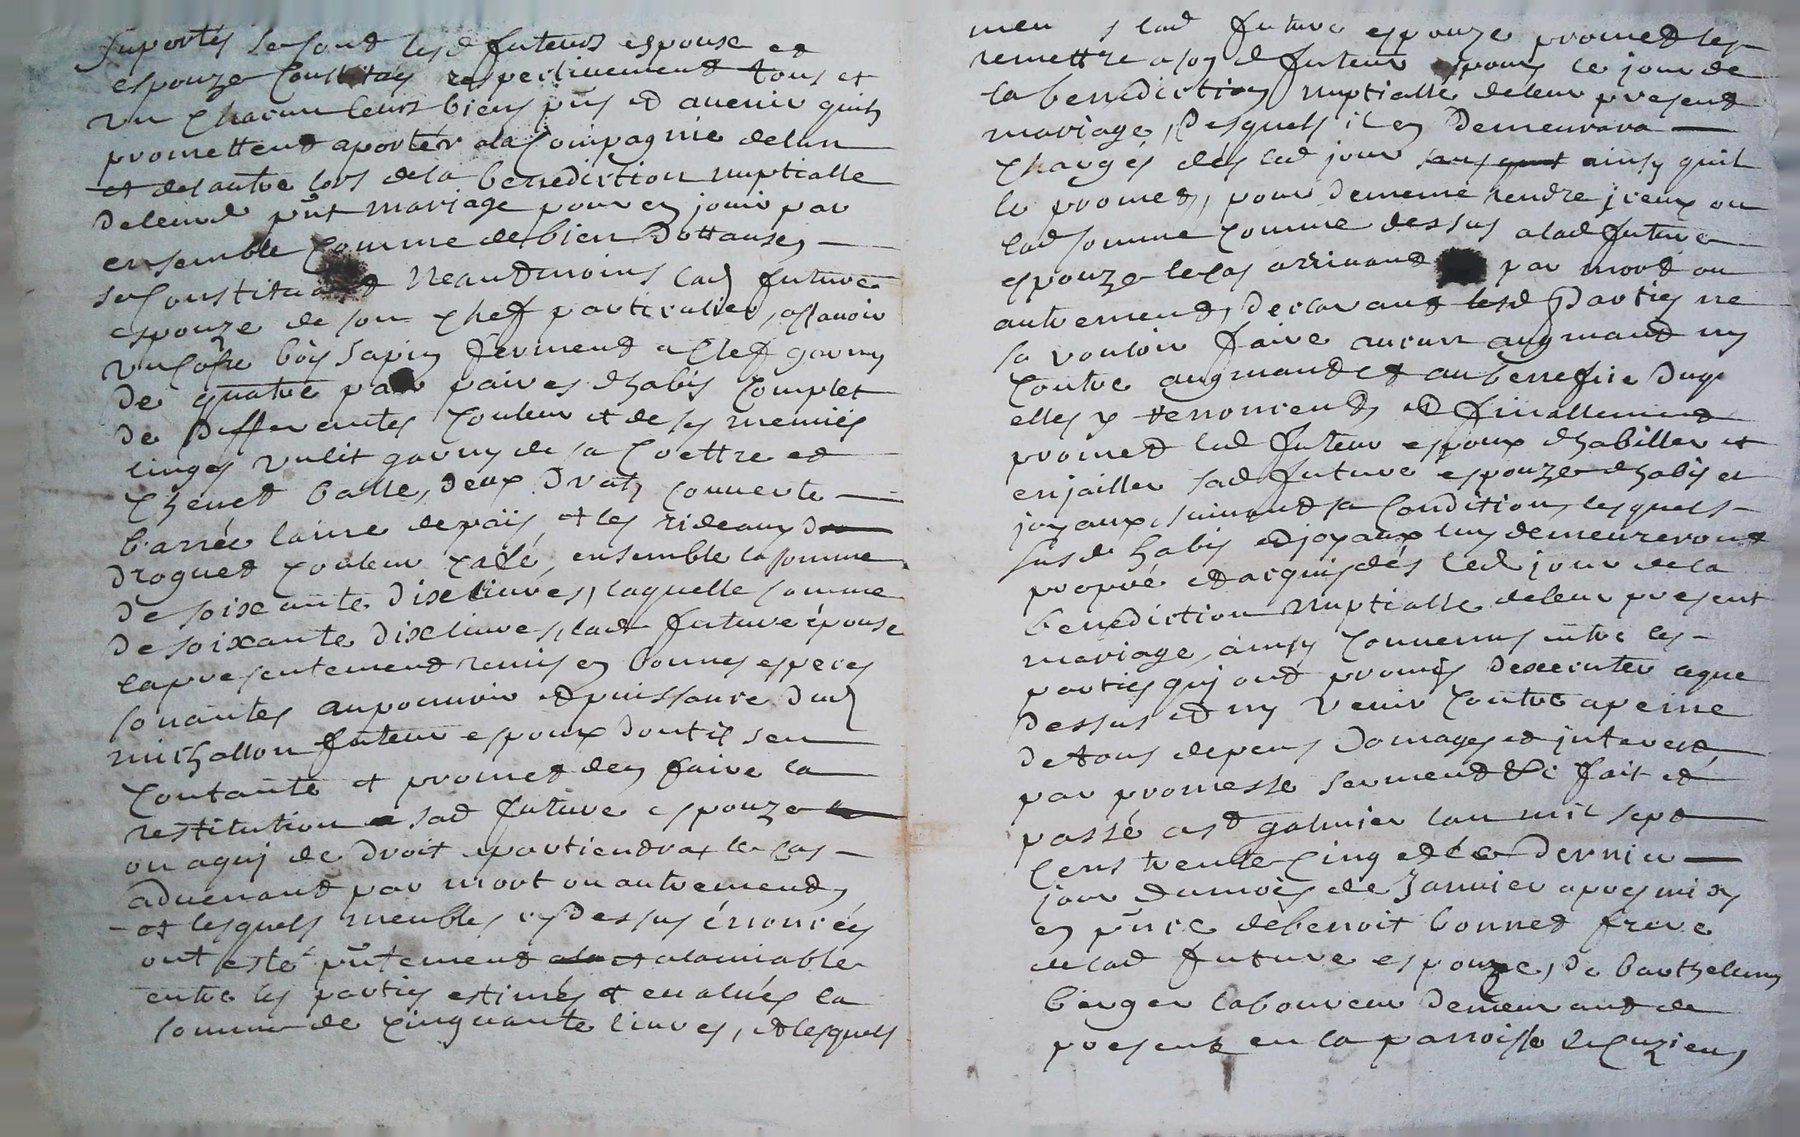 suportés se sont lesd futeurs espoux et
espouze constitués respectivement tous et
un chacun leurs biens pñs et avenir quils
promettent aporter a la compagnie de lun
et de lautre lors de la benediction nuptialle
de leurd pñt mariage pour en jouir par
ensemble comme de bien dottaux,
se constituant neantmoins lad future
espouze de son chef particulier, assavoir
un cofre bois sapin ferment a clef garny
de quatre paires dhabis complet
de differentes couleur et de ses menües
linges un lit garny de sa coettre et
chevet balle, deux draps couverte
barrée laine de païs, et les rideaux
droguet couleur caffé, ensemble la somme
de soixante dix livres, laquelle somme
de soixante dix livres, lad future épouse
a presentement remis en bonnes especes
sonantes au pouvoir et puissance dud
michallon futeur espoux dont il sen
contante et promet den faire la
restitution a sad future espouze
ou a quj de droit apartiendra, le cas
advenant par mort ou autrement,
et lesquels meubles cy dessus énoncés
ont esté pñtement a lamiable
entre les parties estimés et evalués la
somme de cinquante livres, et lesquels
lad future espouze promet les
remettre a sond futeur espoux le jour de
la benediction nuptialle de leur present
mariage, desquels il en demeurera
chargés dés led jour ainsy quil
le promet, pour de meme rendre jceux ou
lad somme comme dessus a lad future
espouze le cas arrivant par mort ou
autrement, declarant lesd parties ne
se vouloir faire aucun augmant ny
contre augmant et au benefice duq
elles y renoncent, et finallement
promet led futeur espoux dhabiller et
enjailler sad future espouze dhabis et
joyaux, suivant sa condition, lesquels
susd habis et joyaux luy demeureront
propre et acquis dés led jour de la
benediction nuptialle de leur present
mariage, ainsy convenus entre les
parties quj ont promis dexecuter ce que
dessus et ny venir contre a peine
de tous depens domages et interest,
par promesse serment &c fait et
passé a st galmier lan mil sept
cens trente cinq et le dernier
jour du mois de Janvier apres midy
en pñce de benoit bonnet frere
de lad future espouze, de barthelemy
berger laboureur demeurant de
present en la parroisse de Cuzieu,